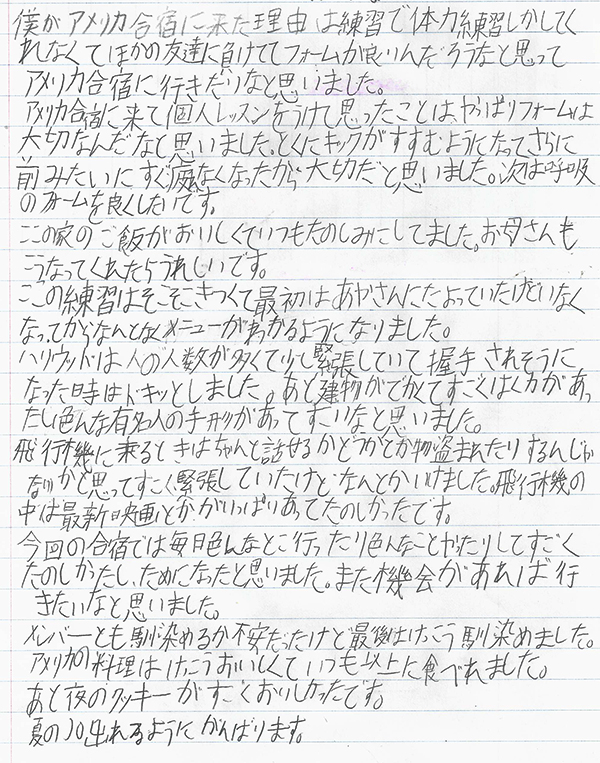 僕がアメリカ合宿に来た理由は練習で体力練習しかしてく
れなくてほかの友達に負けててフォームが良いんだろうなと思って
アメリカ合宿に行きたいなと思いました。
アメリカ合宿に来て個人レッスンをうけて思ったことは、やっぱりフォームは
大切なんだなと思いました。とくにキックがすすむようになってさらに
前みたいにすぐ疲れなくなったから大切だと思いました。次は呼吸
のフォームを良くしたいです。
ここの家のご飯がおいしくていつもたのしみにしてました。お母さんも
こうなってくれたらうれしいです。
ここの練習はそこそこきつくて最初はあやさんにたよっていたけどいなく
なってからなんとなくメニューがわかるようになりました。
ハリウッドは人の人数が多くて少し緊張していて握手されそうに
なった時はドキッとしました。あと建物がでかくてすごくはく力があっ
たし色んな有名人の手形があってすごいなと思いました。
飛行機に乗るときはちゃんと話せるかどうかとか物盗まれたりするんじゃ
ないかと思ってすごく緊張していたけどなんとかいけました。飛行機の
中は最新映画とかがいっぱいあってたのしかったです。
今回の合宿では毎日色んなとこ行ったり色んなことやったりしてすごく
たのしかったし、ためになったと思いました。また機会があれば行
きたいなと思いました。
メンバーとも馴染めるか不安だったけど最後はけっこう馴染めました。
アメリカの料理はけっこうおいしくていつも以上に食べれました。
あと夜のクッキーがすごくおいしかったです。
夏のJO出れるようにがんばります。